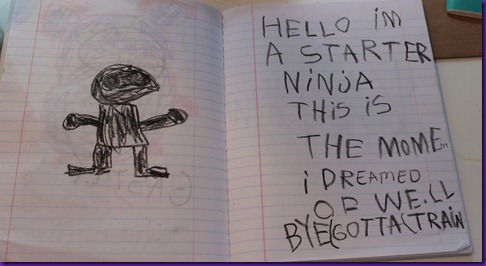 HELLO iM
A STARTER
NiNJA
THiS iS
THE MOME
i DREAMED
OF WE.LL
BYE(GOTTA(TRAiN